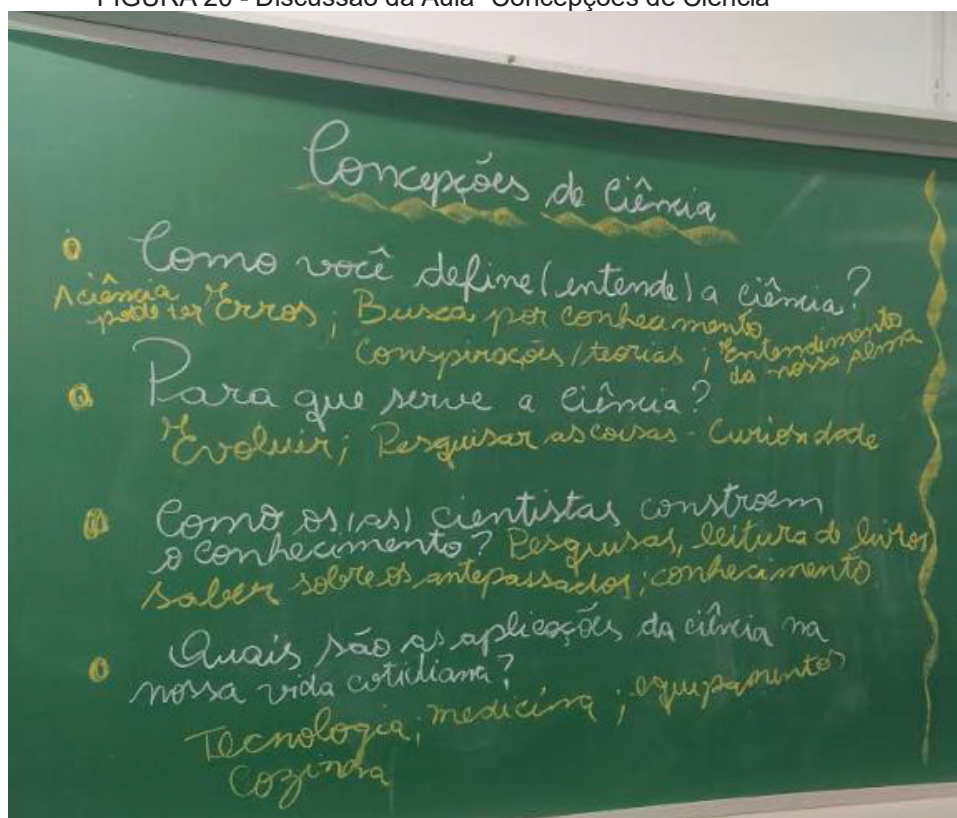 FIGURA 20 - Discussão da Aula "Concepções de Ciência"
Concepções de Ciência
Como você define (entende) a ciência?
A ciência pode ter Erros; Busca por conhecimento
Conspirações/teorias; Entendimento da nossa alma
Para que serve a ciência?
Evoluir; Pesquisar as coisas - Curiosidade
Como os(as) cientistas constroem
o conhecimento? Pesquisas, leitura de livros
saber sobre os antepassados; conhecimento
Quais são as aplicações da ciência na
nossa vida cotidiana?
Tecnologia; medicina; equipamentos
Cozinha